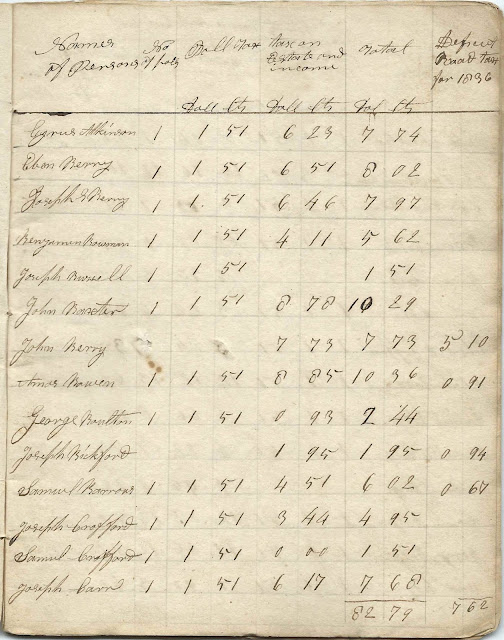 Names of Persons No of pols Poll Tax tax on Estate and income Total Defict Road tax for 1836
Doll Cts Doll Cts Dol Cts
Cyrus Atkinson 1 1 51 6 23 7 74
Eben Berry 1 1 51 6 51 8 02
Joseph S Berry 1 1 51 6 46 7 97
Benjamin Bowman 1 1 51 4 11 5 62
Joseph Bussell 1 1 51 1 51
John Baxter 1 1 51 8 78 10 29
John Berry 7 73 7 73 5 10
Amos Bowen 1 1 51 8 85 10 36 0 91
George Boulton 1 1 51 0 93 2 44
Joseph Bickford 1 95 1 95 0 94
Samuel Barrows 1 1 51 4 51 6 02 0 67
Joseph Crofford 1 1 51 3 44 4 95
Samul Crofford 1 1 51 0 00 1 51
Joseph Carr 1 1 51 6 17 7 68
82 79 7 62